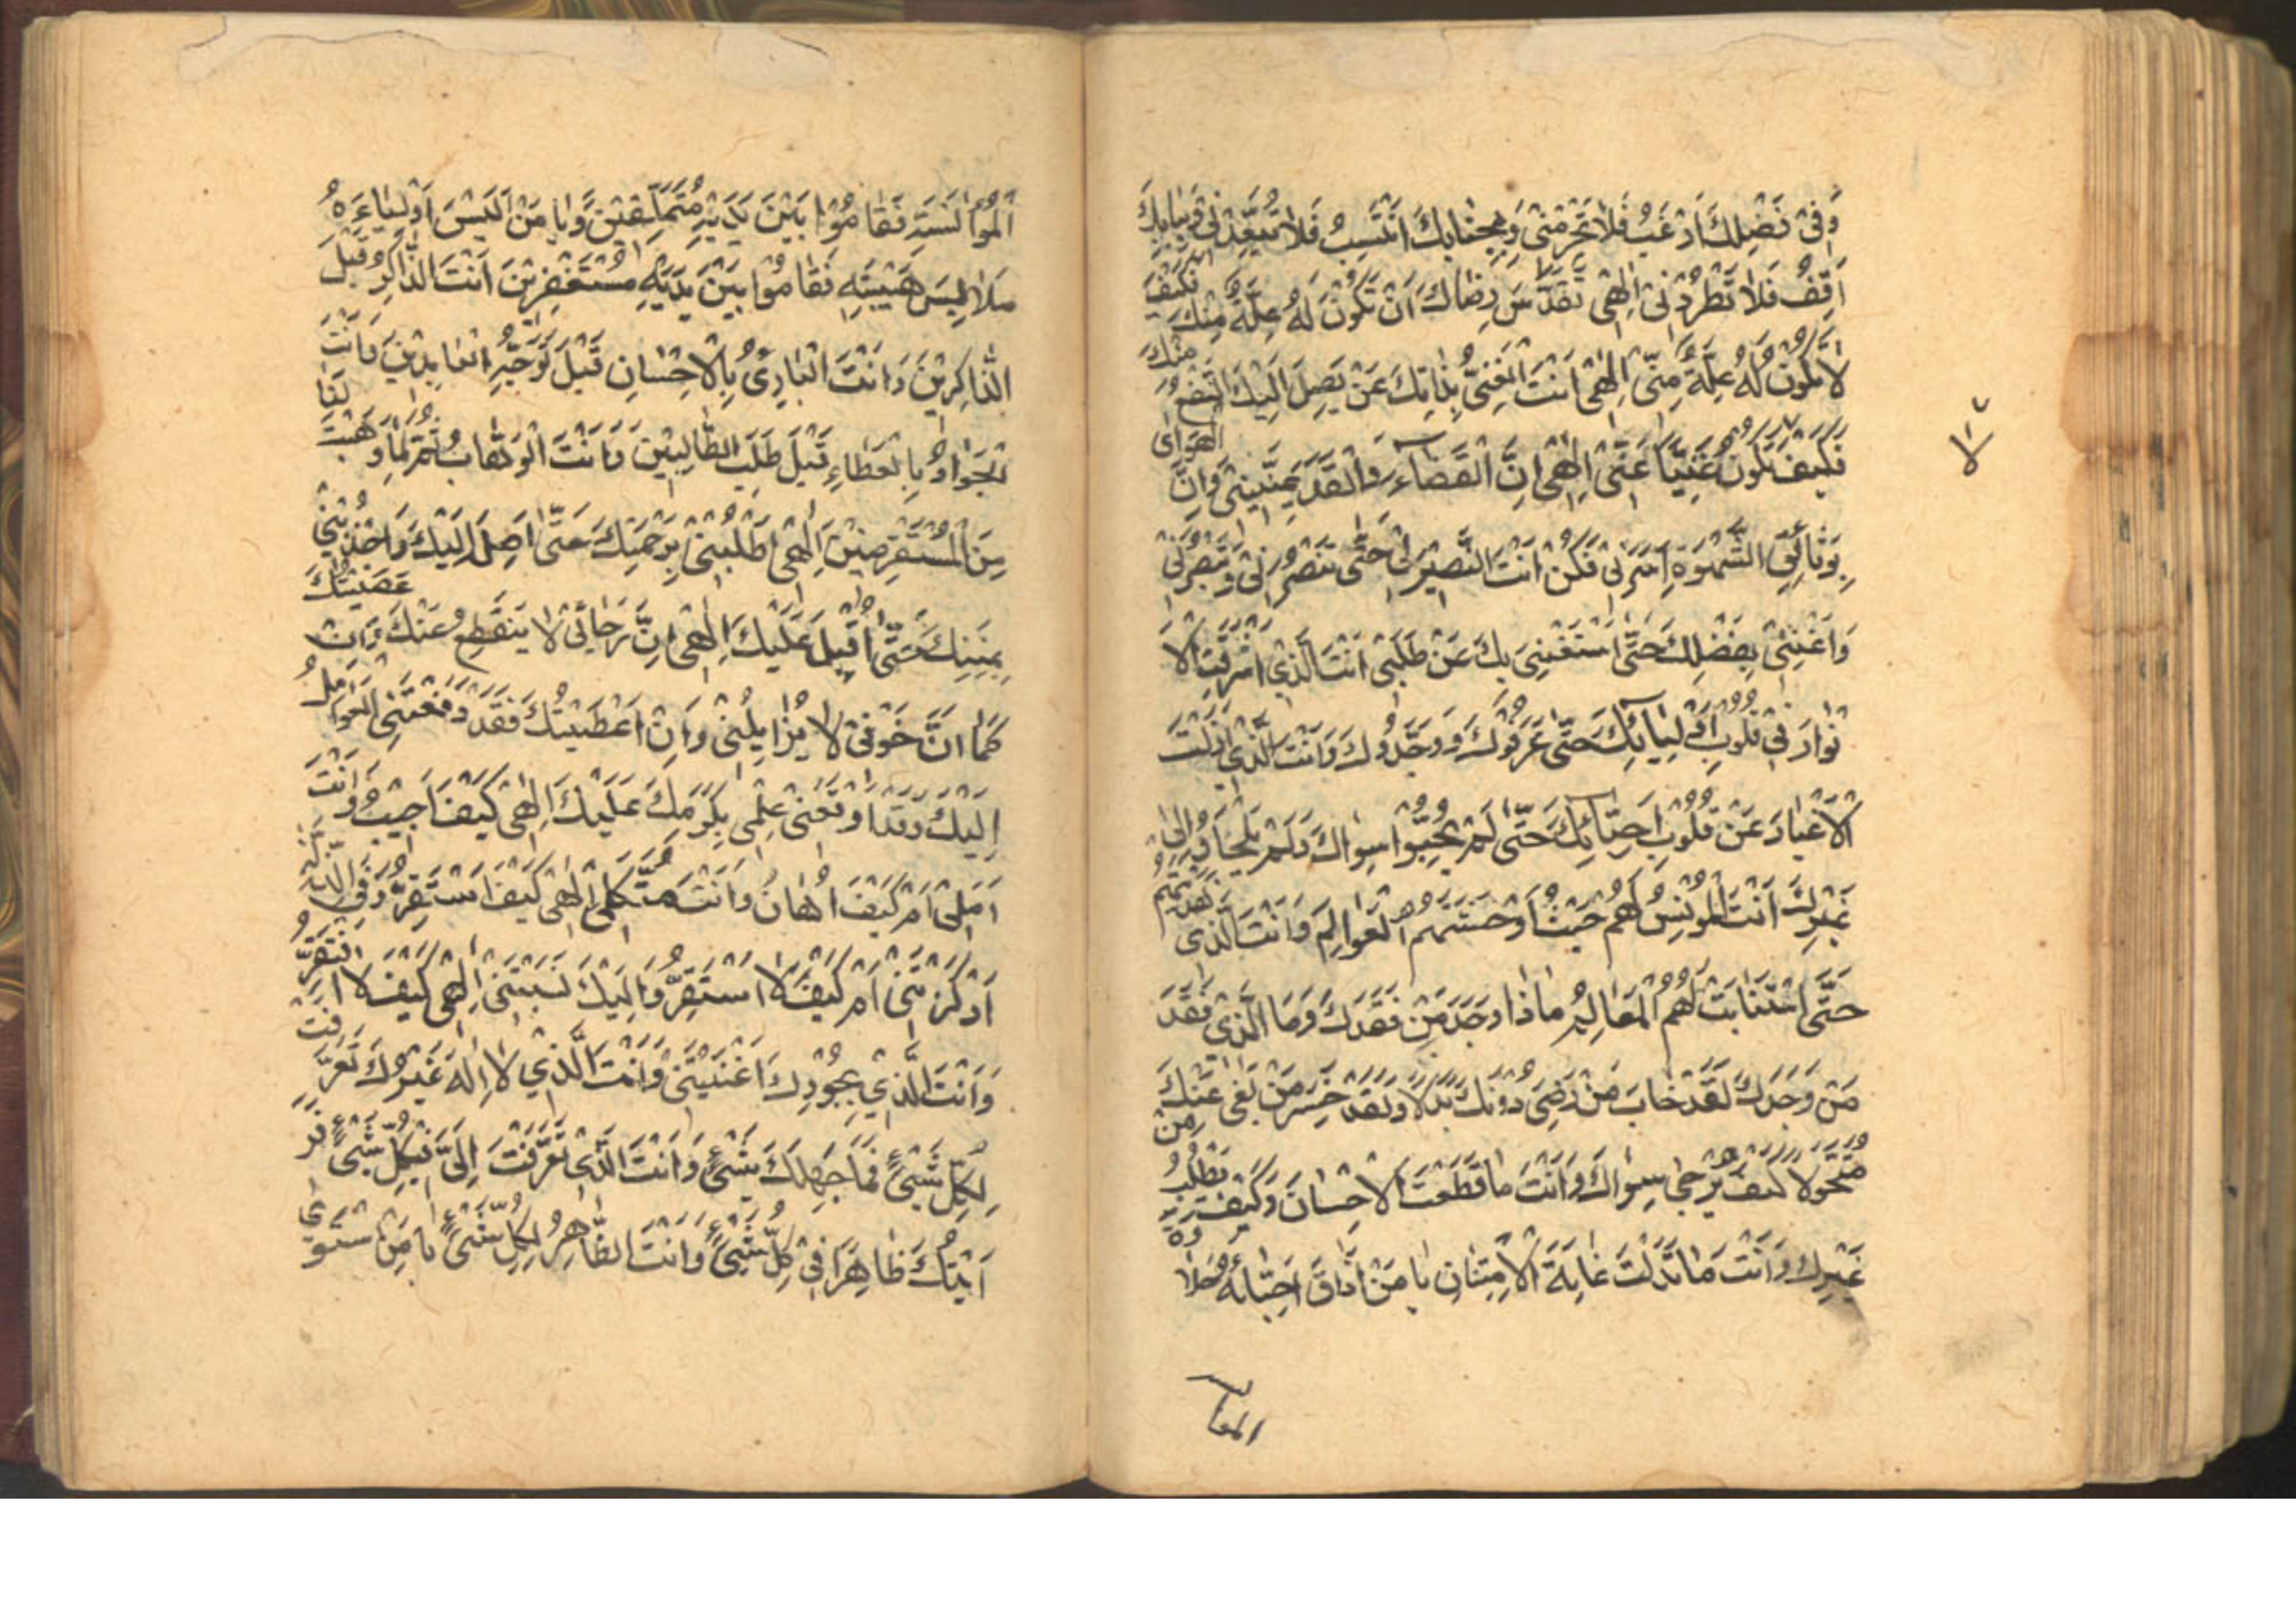 وَفِیْ فَضْلِكَ اَرْغَبُ فَلَا تَحْرِمْنِیْ وَبِجَنَابِكَ اَنْتَسِبُ فَلَا تُبَعِّدْنِیْ وَبِبَابِكَ
اَقِفُ فَلَا تَطْرُدْنِیْ اِلٰهِیْ تَقَدَّسَ رِضَاكَ اَنْ تَكُوْنَ لَهُ عِلَّةٌ مِنْكَ فَكَیْفَ
لَا تَكُوْنُ لَهُ عِلَّةٌ مِنِّیْ اِلٰهِیْ اَنْتَ الْغَنِیُّ بِذَاتِكَ عَنْ یَصِلَ اِلَیْكَ النَّفْعُ مِنْكَ
فَكَیْفَ تَكُوْنُ غَنِیًّا عَنِّیْ اِلٰهِیْ اِنَّ الْقَضَاءَ وَالْقَدَرَ یُمَنِّیْنِیْ وَاِنَّ الْهَوٰی
بِوَثَائِقِ الشَّهْوَةِ اَسَرَنِیْ فَكُنْ اَنْتَ النَّصِیْرَ لِیْ حَتّٰی تَنْصُرَنِیْ وَتُبَصِّرَنِیْ
وَاَغْنِنِیْ بِفَضْلِكَ حَتّٰی اَسْتَغْنِیَ بِكَ عَنْ طَلَبِیْ اَنْتَ الَّذِیْ اَشْرَقْتَ الْاَ
نْوَارَ فِیْ قُلُوْبِ اَوْلِیَائِكَ حَتّٰی عَرَفُوْكَ وَوَحَّدُوْكَ وَاَنْتَ الَّذِیْ اَزَلْتَ
الْاَغْیَارَ عَنْ قُلُوْبِ اَحِبَّائِكَ حَتّٰی لَمْ یُحِبُّوْا سِوَاكَ وَلَمْ یَلْجَاُوْا اِلٰی
غَیْرِكَ اَنْتَ الْمُوْنِسُ لَهُمْ حَیْثُ اَوْحَشَتْهُمُ الْعَوَالِمُ وَاَنْتَ الَّذِیْ هَدَیْتَهُمْ
حَتّٰی اسْتَبَانَتْ لَهُمُ الْمَعَالِمُ مَاذَا وَجَدَ مَنْ فَقَدَكَ وَمَا الَّذِیْ فَقَدَ
مَنْ وَجَدَكَ لَقَدْ خَابَ مَنْ رَضِیَ دُوْنَكَ بَدَلًا وَلَقَدْ خَسِرَ مَنْ بَغٰی عَنْكَ
مُتَحَوَّلًا كَیْفَ یُرْجٰی سِوَاكَ وَاَنْتَ مَا قَطَعْتَ الْاِحْسَانَ وَكَیْفَ یُطْلَبُ مِنْ
غَیْرِكَ وَاَنْتَ مَا بَدَّلْتَ عَایَةَ الْاِمْتِنَانِ یَا مَنْ اَذَاقَ اَحِبَّائَهُ حَلَاوَةَ
المؤا
الْمُؤَانَسَةِ فَقَامُوْا بَیْنَ یَدَیْهِ مُتَمَلِّقِیْنَ وَیَا مَنْ اَلْبَسَ اَوْلِیَاءَهُ
مَلَابِسَ هَیْبَتِهِ فَقَامُوْا بَیْنَ یَدَیْهِ مُسْتَغْفِرِیْنَ اَنْتَ الذَّاكِرُ قَبْلَ
الذَّاكِرِیْنَ وَاَنْتَ الْبَادِئُ بِالْاِحْسَانِ قَبْلَ تَوَجُّهِ الْعَابِدِیْنَ وَاَنْتَ
الْجَوَادُ بِالْعَطَاءِ قَبْلَ طَلَبِ الطَّالِبِیْنَ وَاَنْتَ الْوَهَّابُ ثُمَّ لِمَا وَهَبْتَ لَنَا
مِنَ الْمُسْتَقْرِضِیْنَ اِلٰهِیْ اطْلُبْنِیْ بِرَحْمَتِكَ حَتّٰی اَصِلَ اِلَیْكَ وَاجْذُبْنِیْ
بِمِنَنِكَ حَتّٰی اُقْبِلَ عَلَیْكَ اِلٰهِیْ اِنَّ رَجَائِیْ لَا یَنْقَطِعُ عَنْكَ وَاِنْ عَصَیْتُكَ
كَمَا اَنَّ خَوْفِیْ لَا یُزَایِلُنِیْ وَاِنْ اَعْطَیْتُكَ فَقَدْ دَفَعَتْنِی الْعَوَالِمُ
اِلَیْكَ وَقَدْ اَوْقَعَنِیْ عِلْمِیْ بِكَرَمِكَ عَلَیْكَ اِلٰهِیْ كَیْفَ اَخِیْبُ وَاَنْتَ
اَمَلِیْ اَمْ كَیْفَ اُهَانُ وَاَنْتَ مُتَّكَلِیْ اِلٰهِیْ كَیْفَ اَسْتَقِرُّ وَفِی الذِّلَّةِ
اَرْكَزْتَنِیْ اَمْ كَیْفَ لَا اَسْتَقِرُّ وَاِلَیْكَ نَسَبْتَنِیْ اِلٰهِیْ كَیْفَ لَا اَفْتَقِرُ
وَاَنْتَ الَّذِیْ بِجُوْدِكَ اَغْنَیْتَنِیْ وَاَنْتَ الَّذِیْ لَا اِلٰهَ غَیْرُكَ تَعَرَّفْتَ
لِكُلِّ شَیْءٍ فَمَا جَهِلَكَ شَیْءٌ وَاَنْتَ الَّذِیْ تَعَرَّفْتَ اِلَیَّ فِیْ كُلِّ شَیْءٍ فَرَ
اَیْتُكَ ظَاهِرًا فِیْ كُلِّ شَیْءٍ وَاَنْتَ الظَّاهِرُ لِكُلِّ شَیْءٍ یَا مَنِ اسْتَوٰی